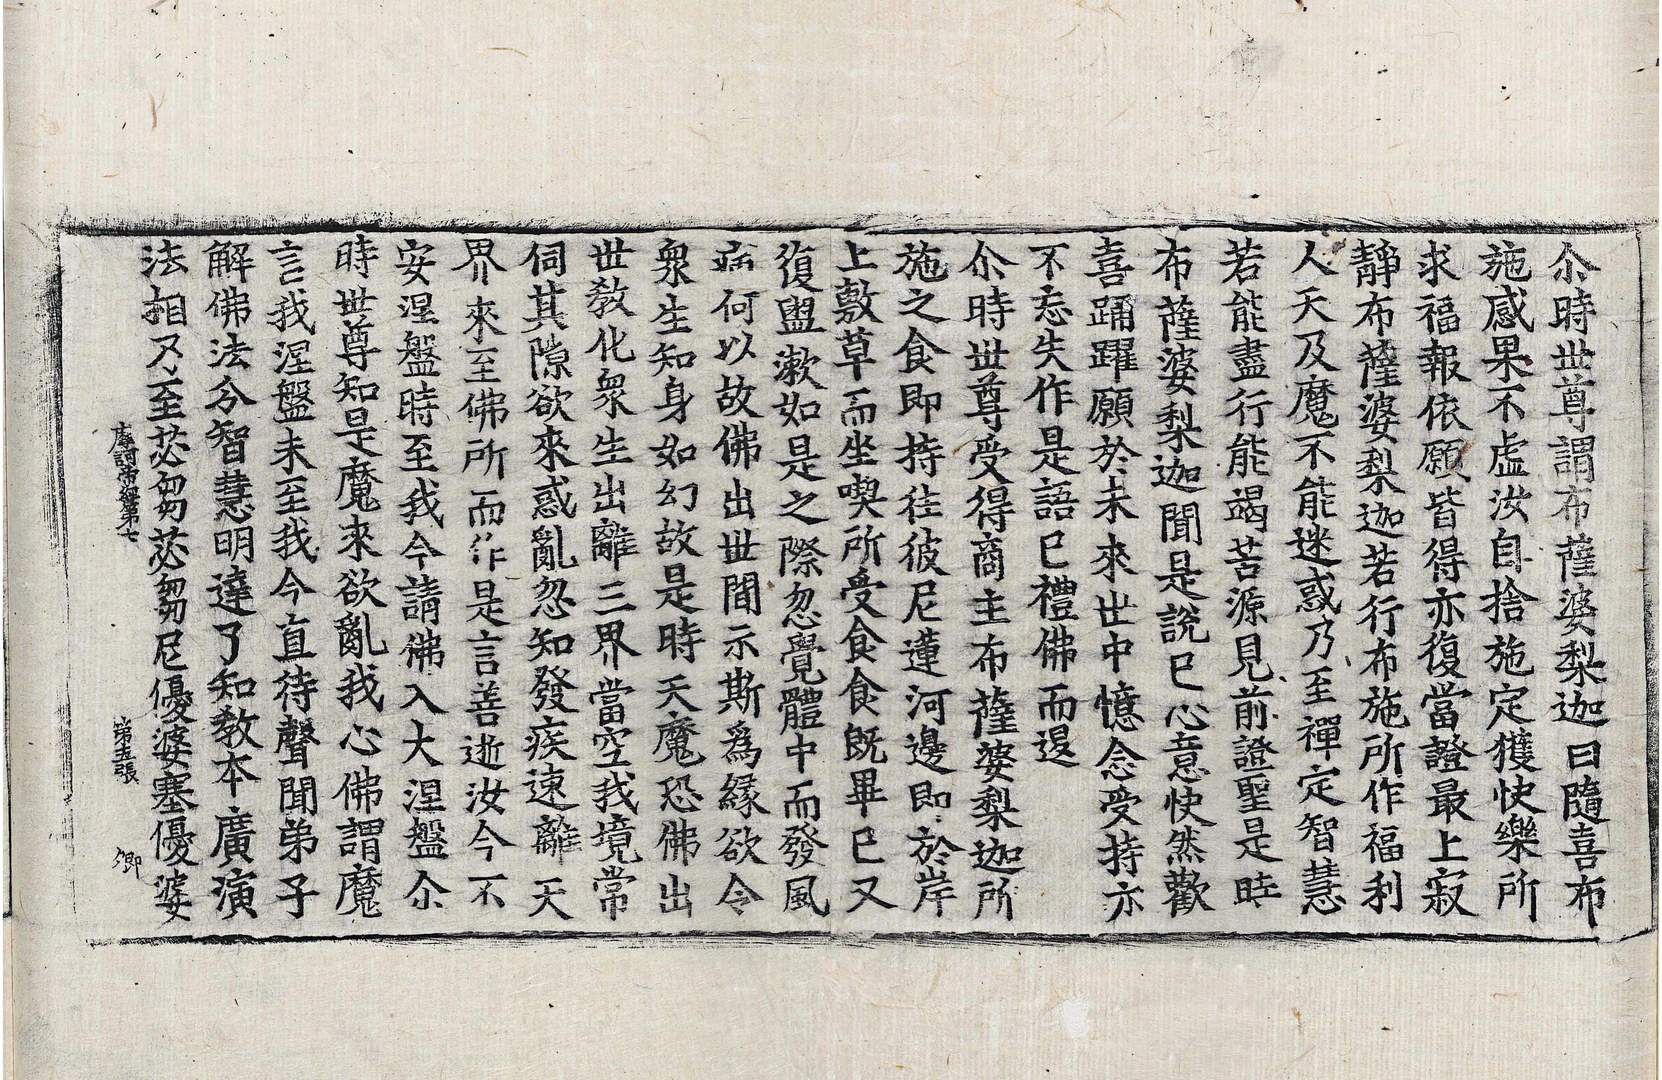 尒時世尊謂布薩婆梨迦曰隨喜布
施感果不虛汝自捨施定獲快樂所
求福報依願皆得亦復當證最上寂
靜布薩婆梨迦若行布施所作福利
人天及魔不能迷惑乃至禪定智慧
若能盡行能竭苦源見前證聖是時
布薩婆梨迦聞是說已心意快然歡
喜踊躍願於未來世中憶念受持亦
不忘失作是語已禮佛而退
尒時世尊受得商主布薩婆梨迦所
施之食即持往彼尼蓮河邊即於岸
上敷草而坐喫所受食食既畢已又
復盥漱如是之際忽覺體中而發風
病何以故佛出世間示斯爲緣欲令
衆生知身如幻故是時天魔恐佛出
世敎化衆生出離三界當空我境常
伺其隙欲來惑亂忽知發疾速離天
界來至佛所而作是言善逝汝今不
安涅盤時至我今請佛入大涅盤尒
時世尊知是魔來欲亂我心佛謂魔
言我涅盤未至我今直待聲聞弟子
解佛法分智慧明達了知敎本廣演
法相又至苾芻苾芻尼優婆塞優婆
摩訶帝經第七 第五張 卿